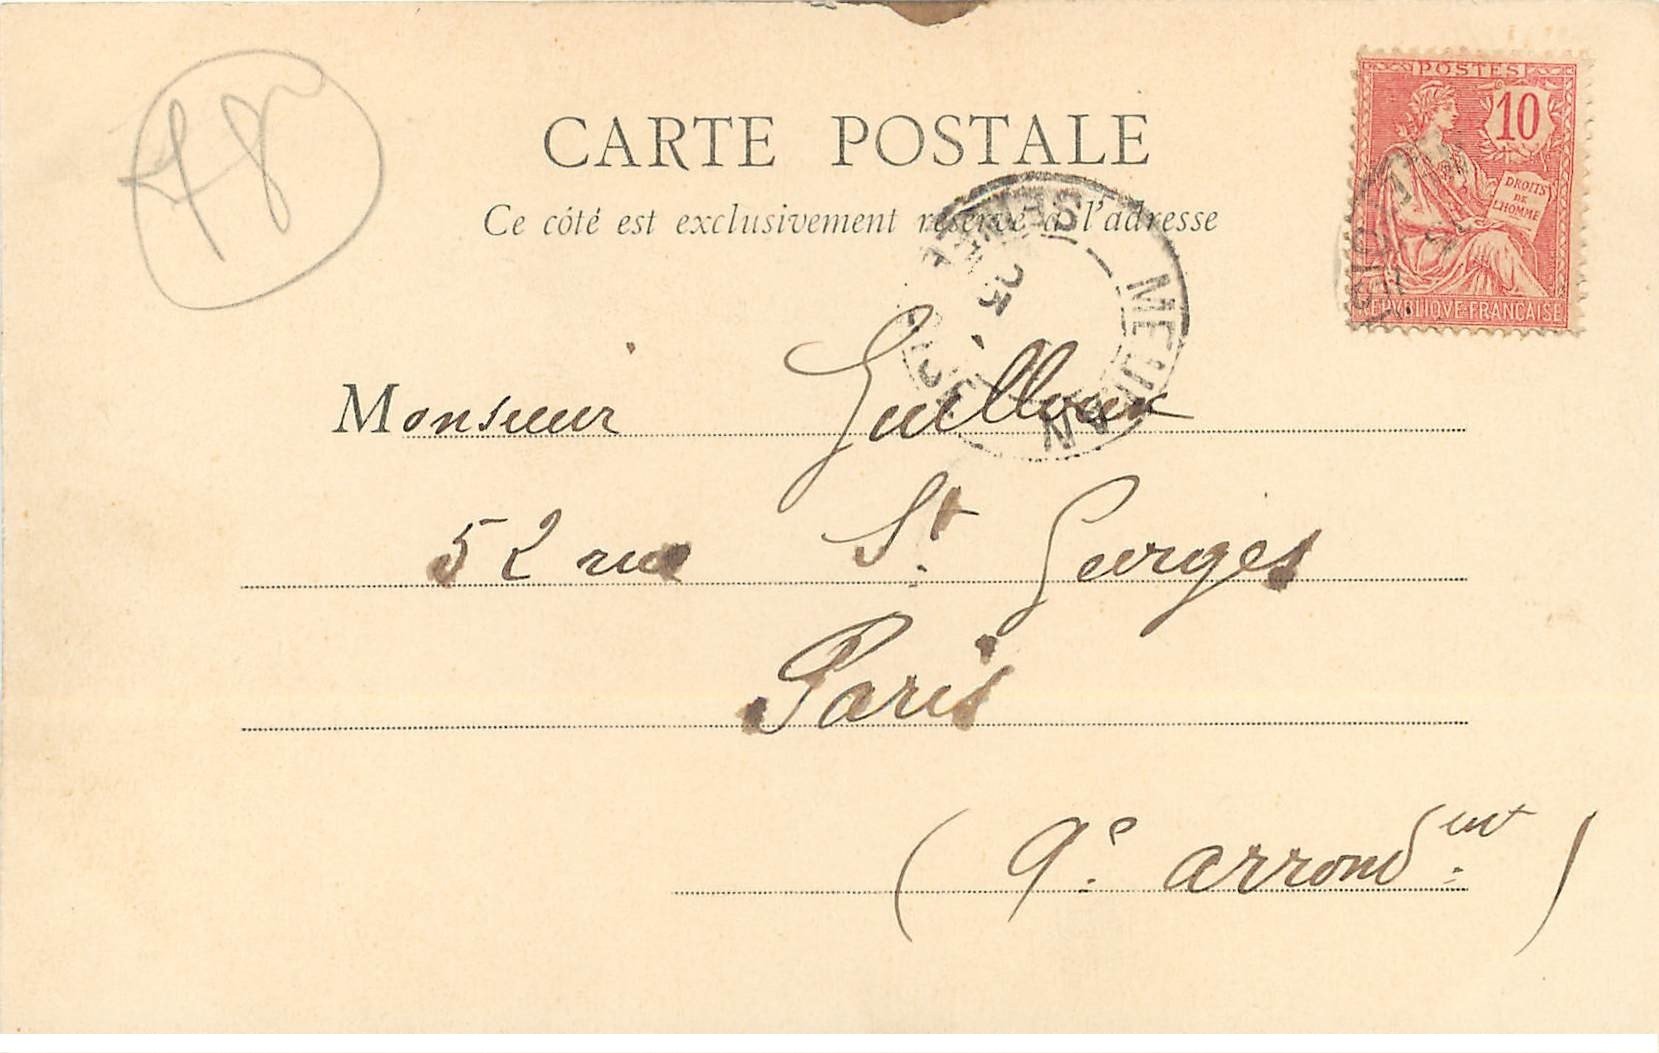 78
CARTE POSTALE
Ce côté est exclusivement réservé à l'adresse
POSTES
10
DROITS
DE
L'HOMME
REPVBLIQVE FRANCAISE
MEULAN
Monsieur Guilloux
52 rue St. Georges
Paris
(9e. arrondent.)